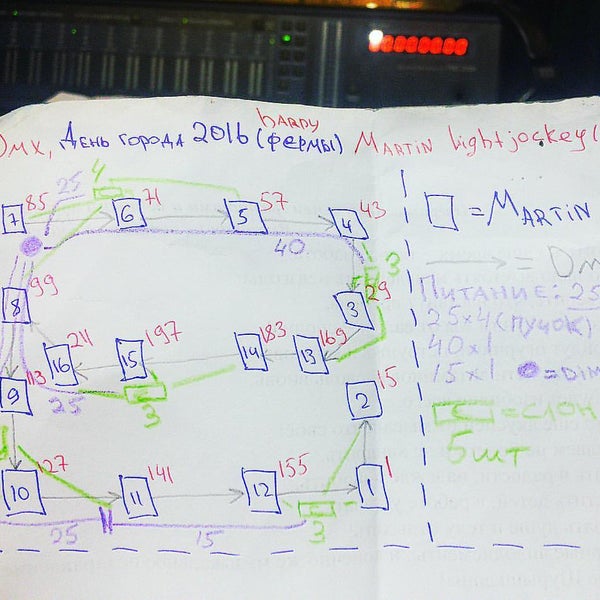 DMX, День города 2016 (фермы) Martin lightjockey(
hardy
25
4
7 85
6 71
5 57
4 43
= Martin
40
= Dm
3
8 99
3 29
Питание: 25
25x4 (пучок)
40x1
15x1 = Dim
16 211
15 197
14 183
13 169
9 113
2 15
25
3
= Слон
5 шт
10 127
11 141
12 155
1 1
3
25
15